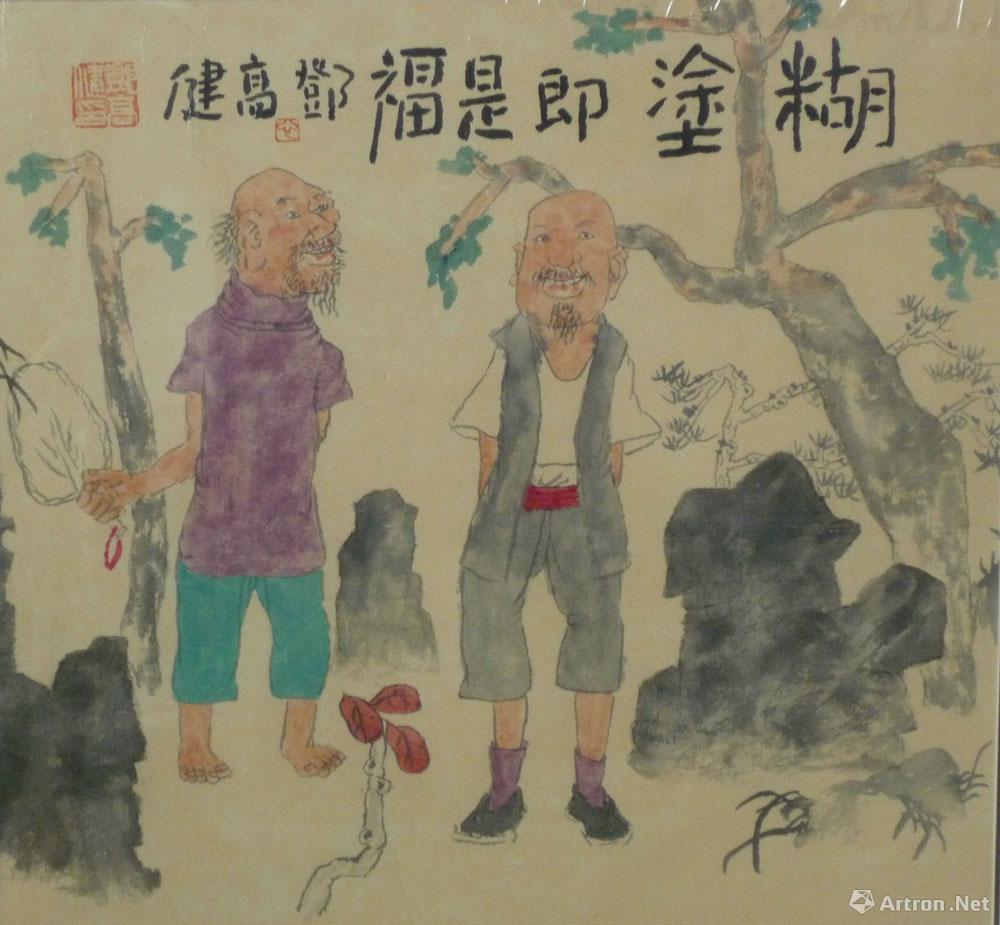 糊塗即是福鄧高健
Artron.Net